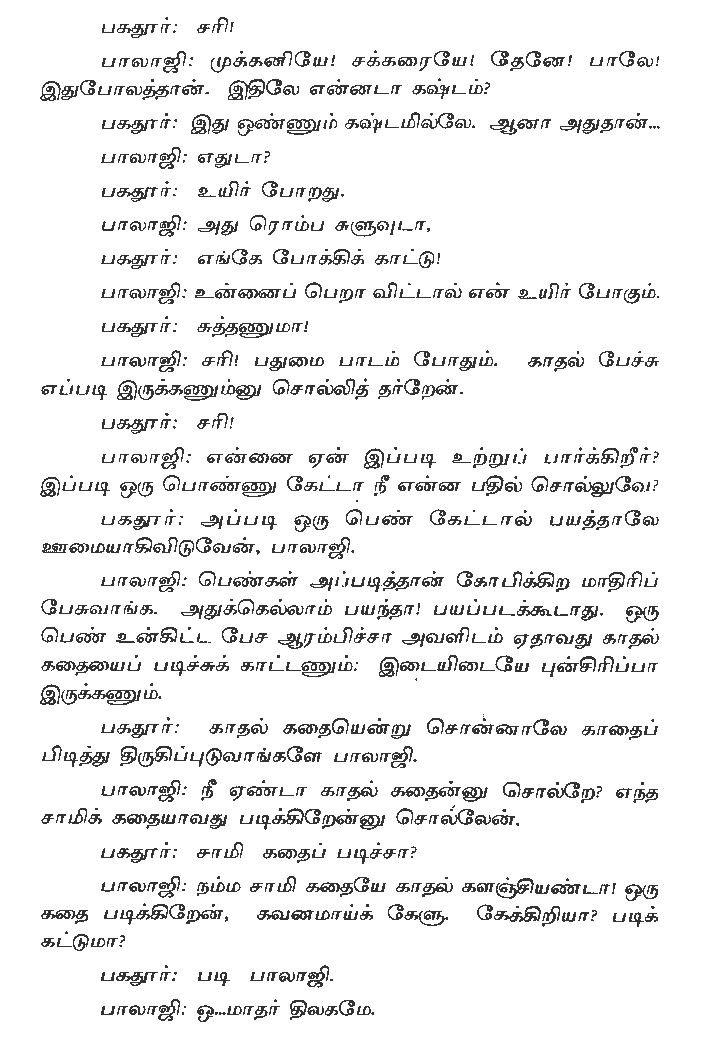 பகதூர்: சரி!
பாலாஜி: முக்கனியே! சக்கரையே! தேனே! பாலே!
இதுபோலத்தான். இதிலே என்னடா கஷ்டம்?
பகதூர்: இது ஒண்ணும் கஷ்டமில்லே. ஆனா அதுதான்...
பாலாஜி: எதுடா?
பகதூர்: உயிர் போறது.
பாலாஜி: அது ரொம்ப சுளுவுடா,
பகதூர்: எங்கே போக்கிக் காட்டு!
பாலாஜி: உன்னைப் பெறா விட்டால் என் உயிர் போகும்.
பகதூர்: சுத்தணுமா!
பாலாஜி: சரி! பதுமை பாடம் போதும். காதல் பேச்சு
எப்படி இருக்கணும்னு சொல்லித் தர்றேன்.
பகதூர்: சரி!
பாலாஜி: என்னை ஏன் இப்படி உற்றுப் பார்க்கிறீர்?
இப்படி ஒரு பொண்ணு கேட்டா நீ என்ன பதில் சொல்லுவே?
பகதூர்: அப்படி ஒரு பெண் கேட்டால் பயத்தாலே
ஊமையாகிவிடுவேன், பாலாஜி.
பாலாஜி: பெண்கள் அப்படித்தான் கோபிக்கிற மாதிரிப்
பேசுவாங்க. அதுக்கெல்லாம் பயந்தா! பயப்படக்கூடாது. ஒரு
பெண் உன்கிட்ட பேச ஆரம்பிச்சா அவளிடம் ஏதாவது காதல்
கதையைப் படிச்சுக் காட்டணும்: இடையிடையே புன்சிரிப்பா
இருக்கணும்.
பகதூர்: காதல் கதையென்று சொன்னாலே காதைப்
பிடித்து திருகிப்புடுவாங்களே பாலாஜி.
பாலாஜி: நீ ஏண்டா காதல் கதைன்னு சொல்றே? எந்த
சாமிக் கதையாவது படிக்கிறேன்னு சொல்லேன்.
பகதூர்: சாமி கதைப் படிச்சா?
பாலாஜி: நம்ம சாமி கதையே காதல் களஞ்சியண்டா! ஒரு
கதை படிக்கிறேன், கவனமாய்க் கேளு. கேக்கிறியா? படிக்
கட்டுமா?
பகதூர்: படி பாலாஜி.
பாலாஜி: ஓ...மாதர் திலகமே.